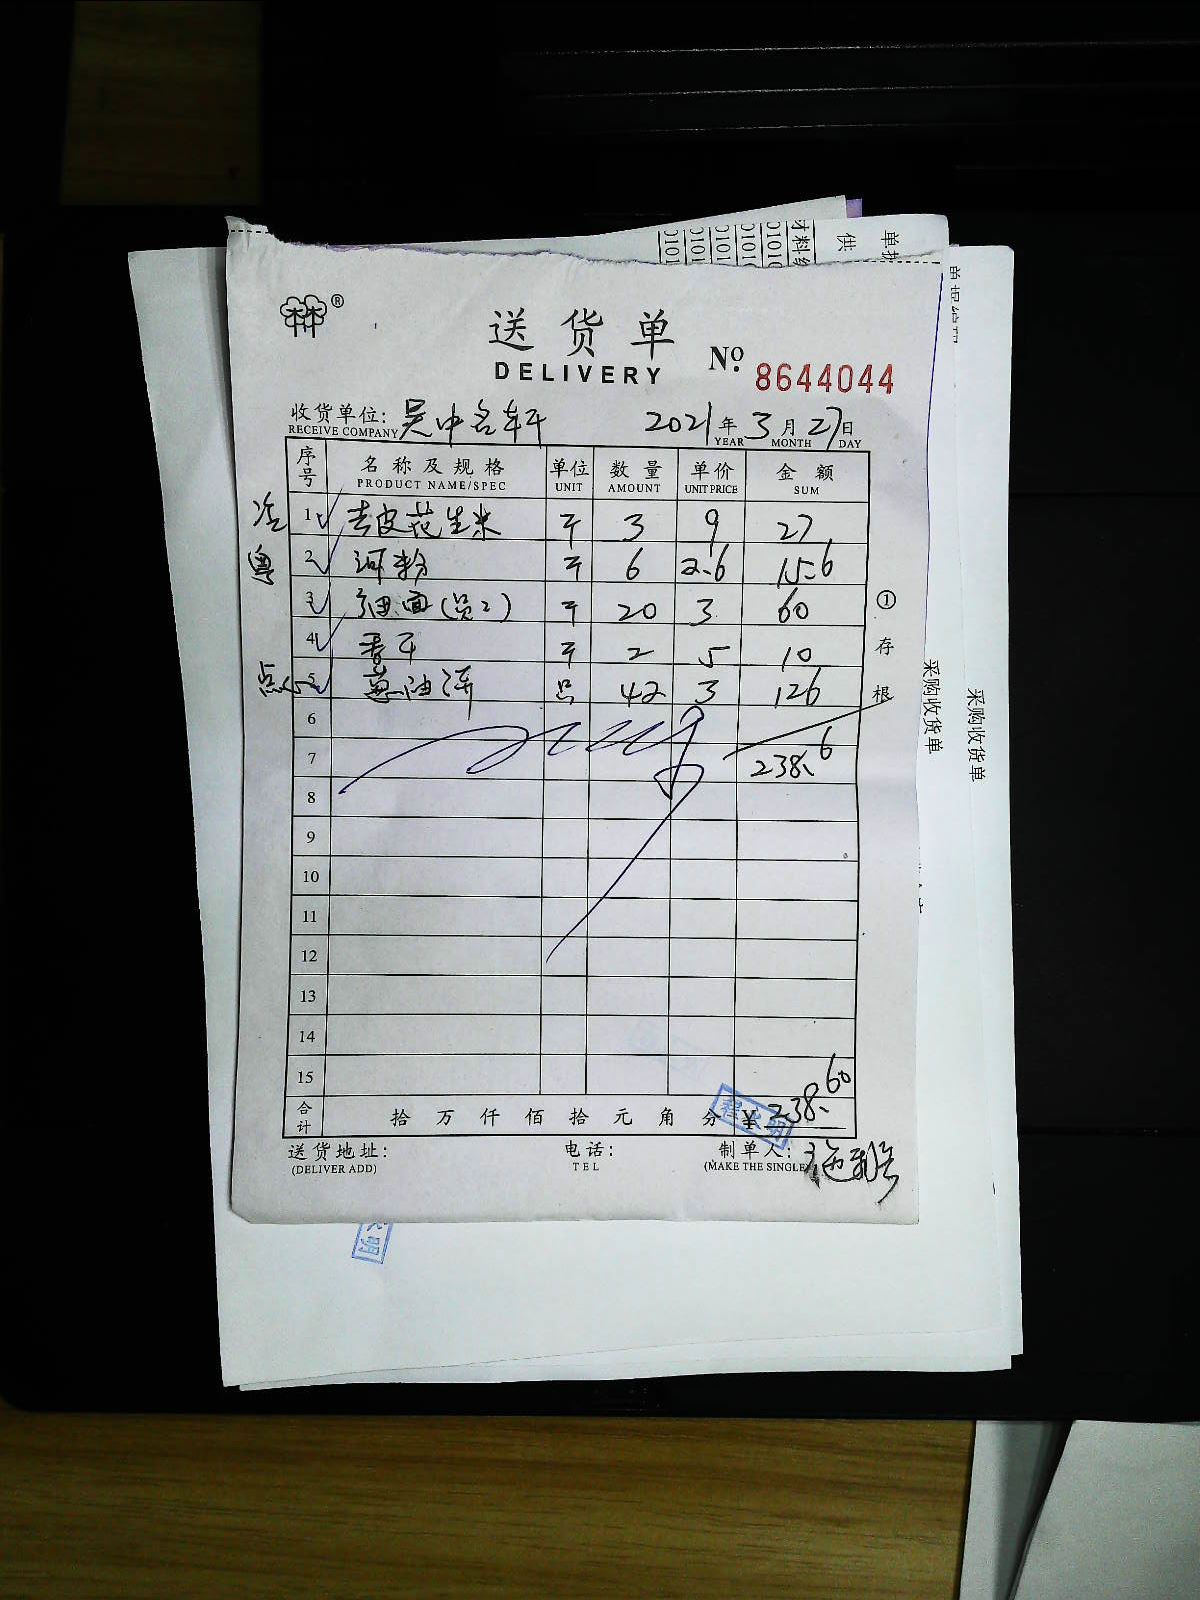 材料
供
单
0101 0101 0101 0101 0101
林林®
送货单
DELIVERY
No. 8644044
收货单位: 吴中名轩 2021年3月27日
RECEIVE COMPANY YEAR MONTH DAY
序号 名称及规格 单位 数量 单价 金额
PRODUCT NAME/SPEC UNIT AMOUNT UNIT PRICE SUM
冷 1 去皮花生米 斤 3 9 27
粤 2 河粉 斤 6 2.6 15.6
3 细面(员工) 斤 20 3 60
4 香干 斤 2 5 10
点心 5 葱油饼 只 42 3 126
6
7 238.6
8
9
10
11
12
13
14
15
合计 拾 万 仟 佰 拾 元 角 分 ¥ 238.60
程永明
送货地址: 电话: 制单人:
(DELIVER ADD) TEL (MAKE THE SINGLE)
①存根
采购收货单
采购收货单
永明